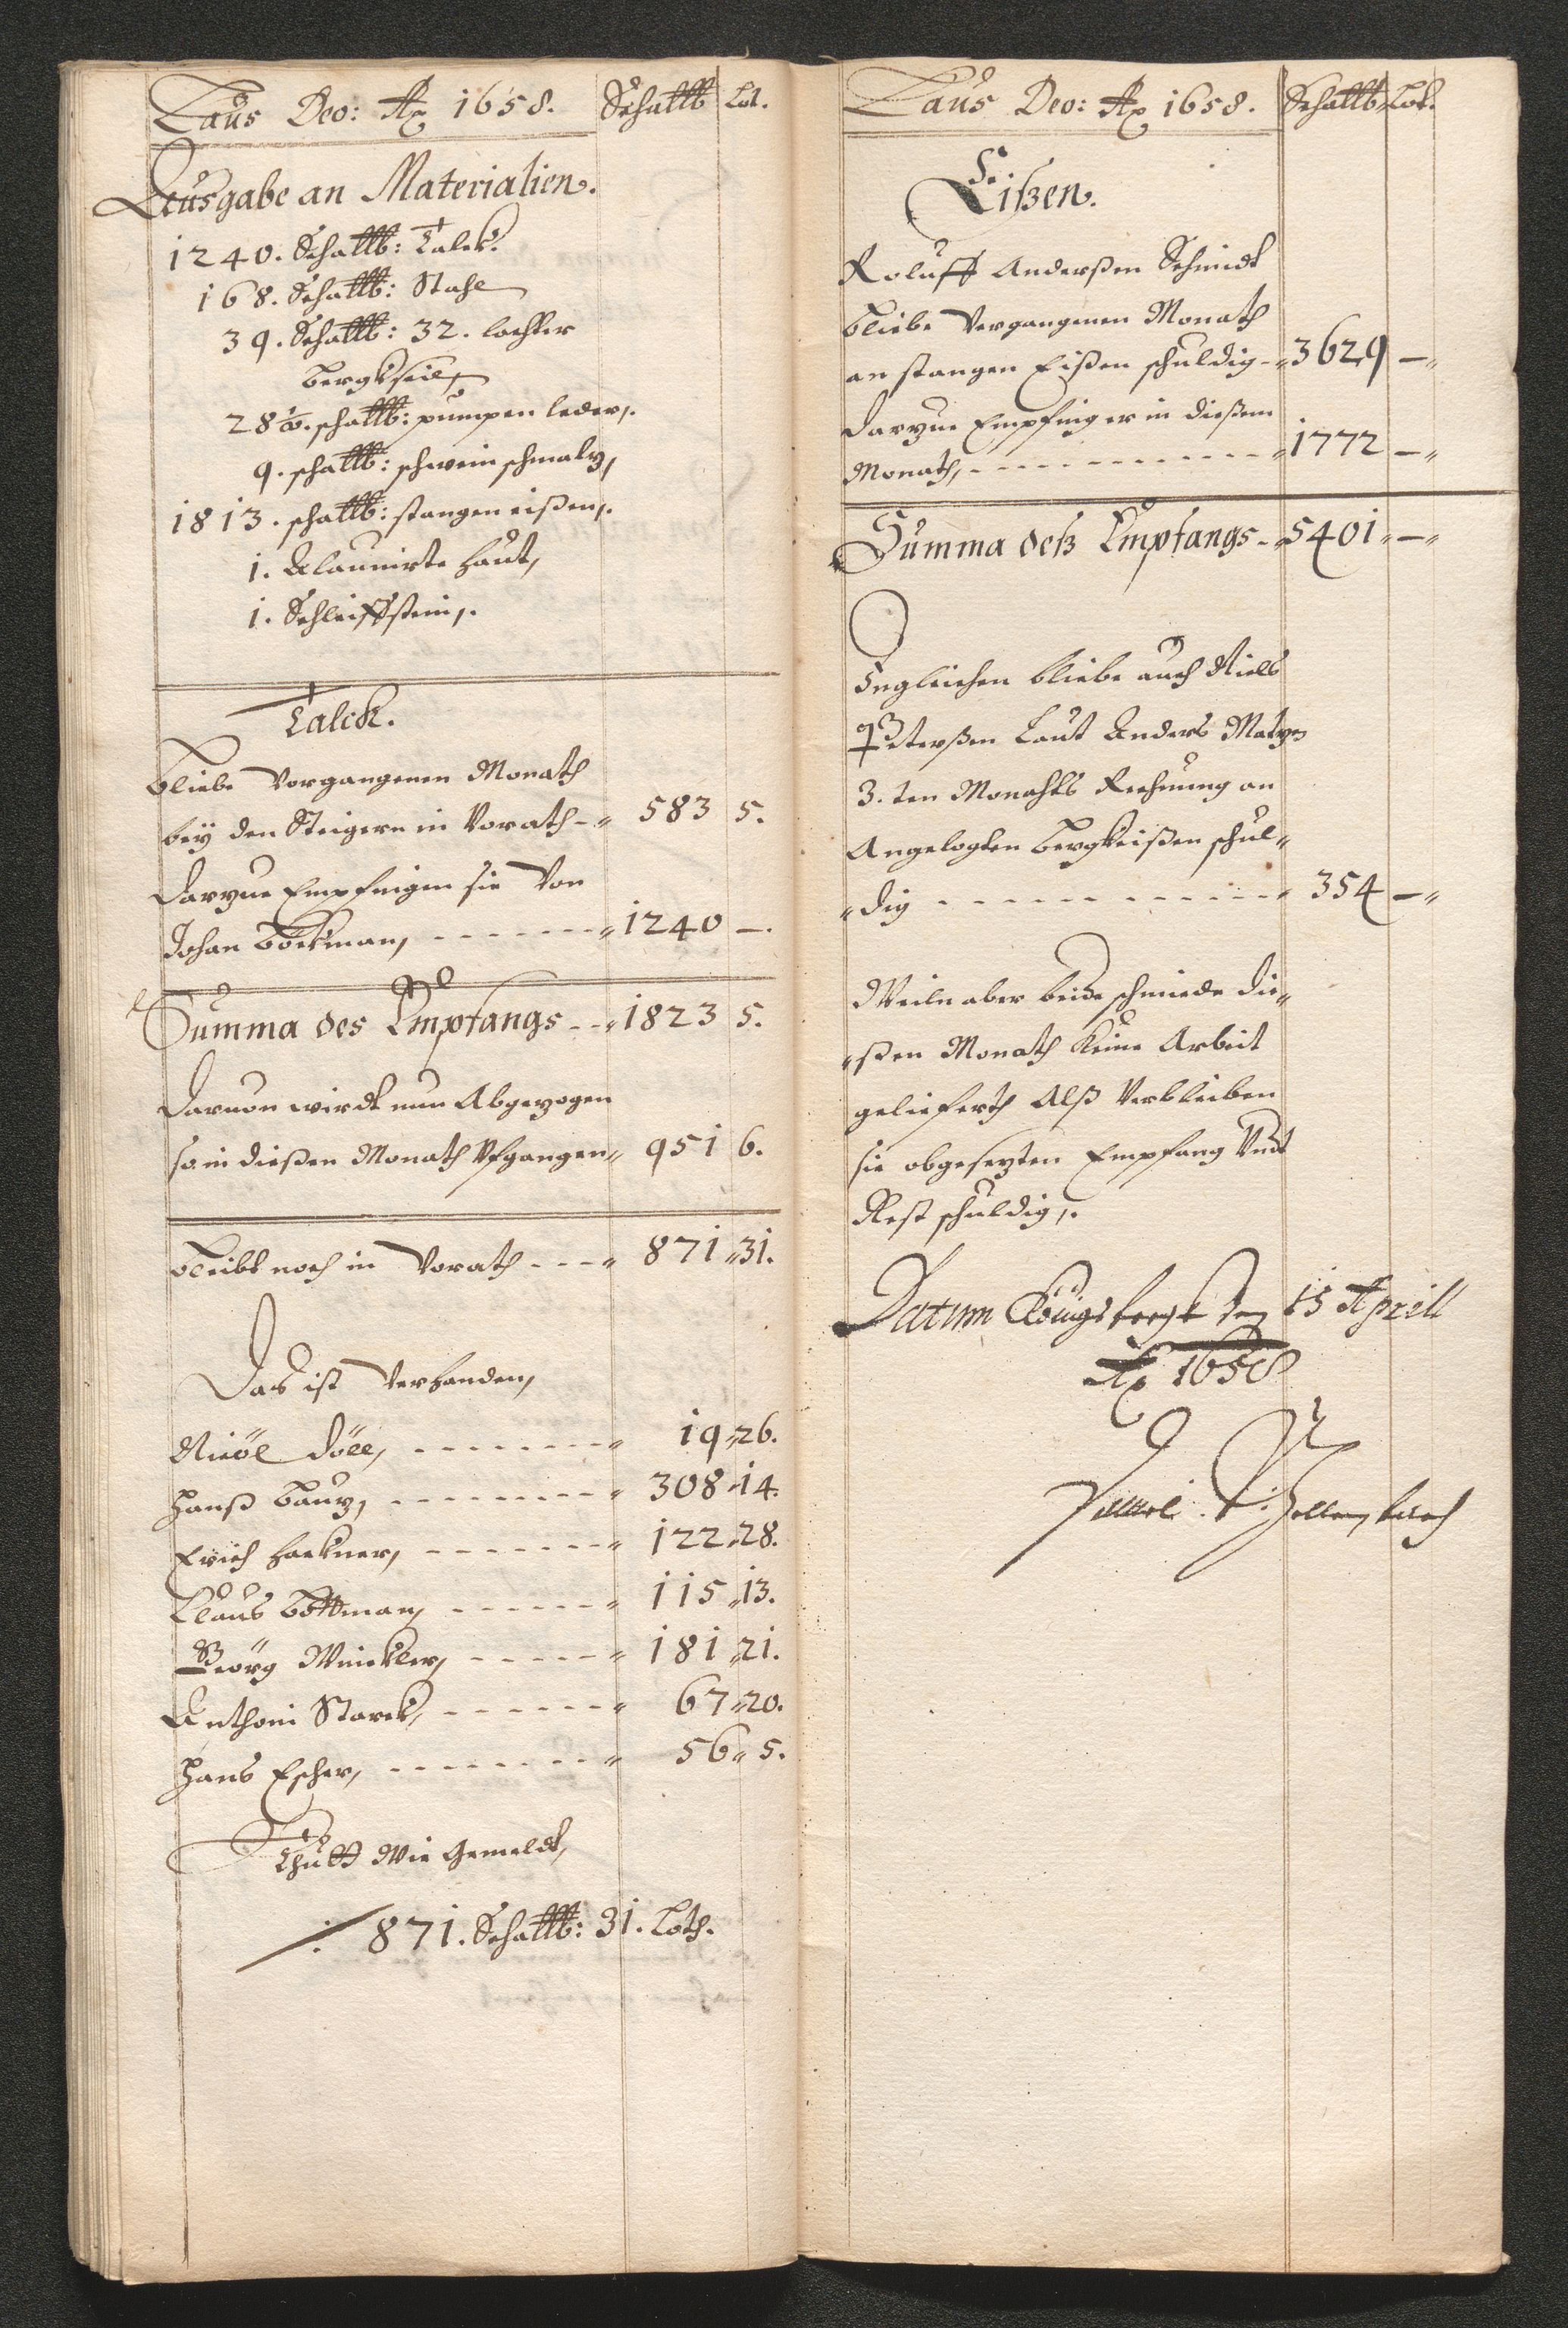 Laus Deo: Ao 1658. Schallb Lot.
Ausgabe an Materialien.
1240. Schallb: Talck.
168. Schallb: Stahl
39. Schallb: 32. lachter
bergkseil,
28½. schallb: pumpen leder,.
9. schallb: schweinschmaltz,
1813. schallb: stangen eißen,.
1. Alaunirte haut,
1. Schleiffstein,.
Talck.
bliebe vergangenen Monath
beÿ den Steigern in Vorath - " 583 5.
Darzue Empfingen sie Von
Johan böckman, - - - - - - " 1240 -.
Summa des Empfangs - - " 1823 5.
Daruon wirdt nun Abgezogen
so in dießen Monath Vfgangen " 951 6.
bleibt noch in Vorath - - - " 871 " 31.
Das ist Verhanden,
döll, - - - - - - - " 19 " 26.
Hanß bautz, - - - - - - - - " 308 " 14.
Erich hackner, - - - - - - - " 122 " 28.
Claus bottman, - - - - - - " 115 " 13.
Geörg Winckler, - - - - - " 181 " 21.
Anthoni Starck, - - - - - - " 67 " 20.
Hans Escher, - - - - - - - - " 56 " 5.
Thutt Wie Gemeldt,
871. Schallb: 31. Loth.
Laus Deo: Ao 1658. Schallb " Lot.
Eißen.
Roluff Anderßen Schmidt
bliebe Vergangenen Monath
an stangen Eißen schuldig - " 3629 - "
darzue Empfing er in dießem
Monath, - - - - - - - - - - - " 1772 - "
Summa deß Empfangs - " 5401 " - "
Ingleichen bliebe auch Niels
Peterßen Laut Anders Matzen
3. ten Monahts Rechnung an
Angelegten bergkeißen schul"
"dig - - - - - - - - - - - " 354 - "
Weiln aber beide schmiede die"
"ßen Monath Keine Arbeit
geliefferth Alß Verbleiben
sie obgesezten Empfang Vndt
Rest schuldig,.
Datum Königsbergk den 15 Aprill
Ao 1658